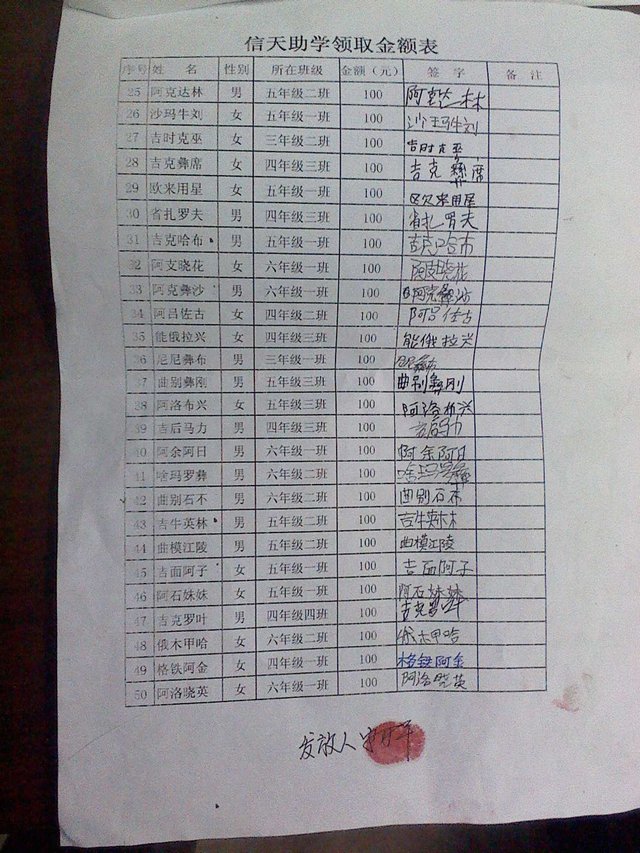 信天助学领取金额表
序号 姓 名 性别 所在班级 金额（元） 签 字 备 注
25 阿克达林 男 五年级二班 100 阿克达林
26 沙玛牛刘 女 五年级一班 100 沙玛牛刘
27 吉时克巫 女 三年级二班 100 吉时克巫
28 吉克彝席 女 四年级三班 100 吉克彝席
29 欧来用星 女 五年级一班 100 欧来用星
30 省扎罗夫 男 四年级三班 100 省扎罗夫
31 吉克哈布 男 五年级一班 100 吉克哈布
32 阿支晓花 女 六年级一班 100 阿支晓花
33 阿克彝沙 男 六年级一班 100 阿克彝沙
34 阿吕佐古 女 四年级二班 100 阿吕佐古
35 能俄拉兴 女 四年级三班 100 能俄拉兴
36 尼尼彝布 男 三年级一班 100
37 曲别彝刚 男 五年级三班 100 曲别彝刚
38 阿洛布兴 女 五年级三班 100 阿洛布兴
39 吉后马力 男 四年级三班 100 吉后马力
40 阿余阿日 男 六年级一班 100 阿余阿日
41 啥玛罗彝 男 六年级二班 100 啥玛罗彝
42 曲别石不 男 六年级一班 100 曲别石不
43 吉牛英林 男 五年级一班 100 吉牛英林
44 曲模江陵 男 五年级二班 100 曲模江陵
45 吉面阿子 女 五年级一班 100 吉面阿子
46 阿石妹妹 女 五年级一班 100 阿石妹妹
47 吉克罗叶 男 四年级四班 100 吉克罗叶
48 俄木甲哈 女 六年级二班 100 俄木甲哈
49 格铁阿金 女 四年级一班 100 格铁阿金
50 阿洛晓英 女 六年级一班 100 阿洛晓英
发放人